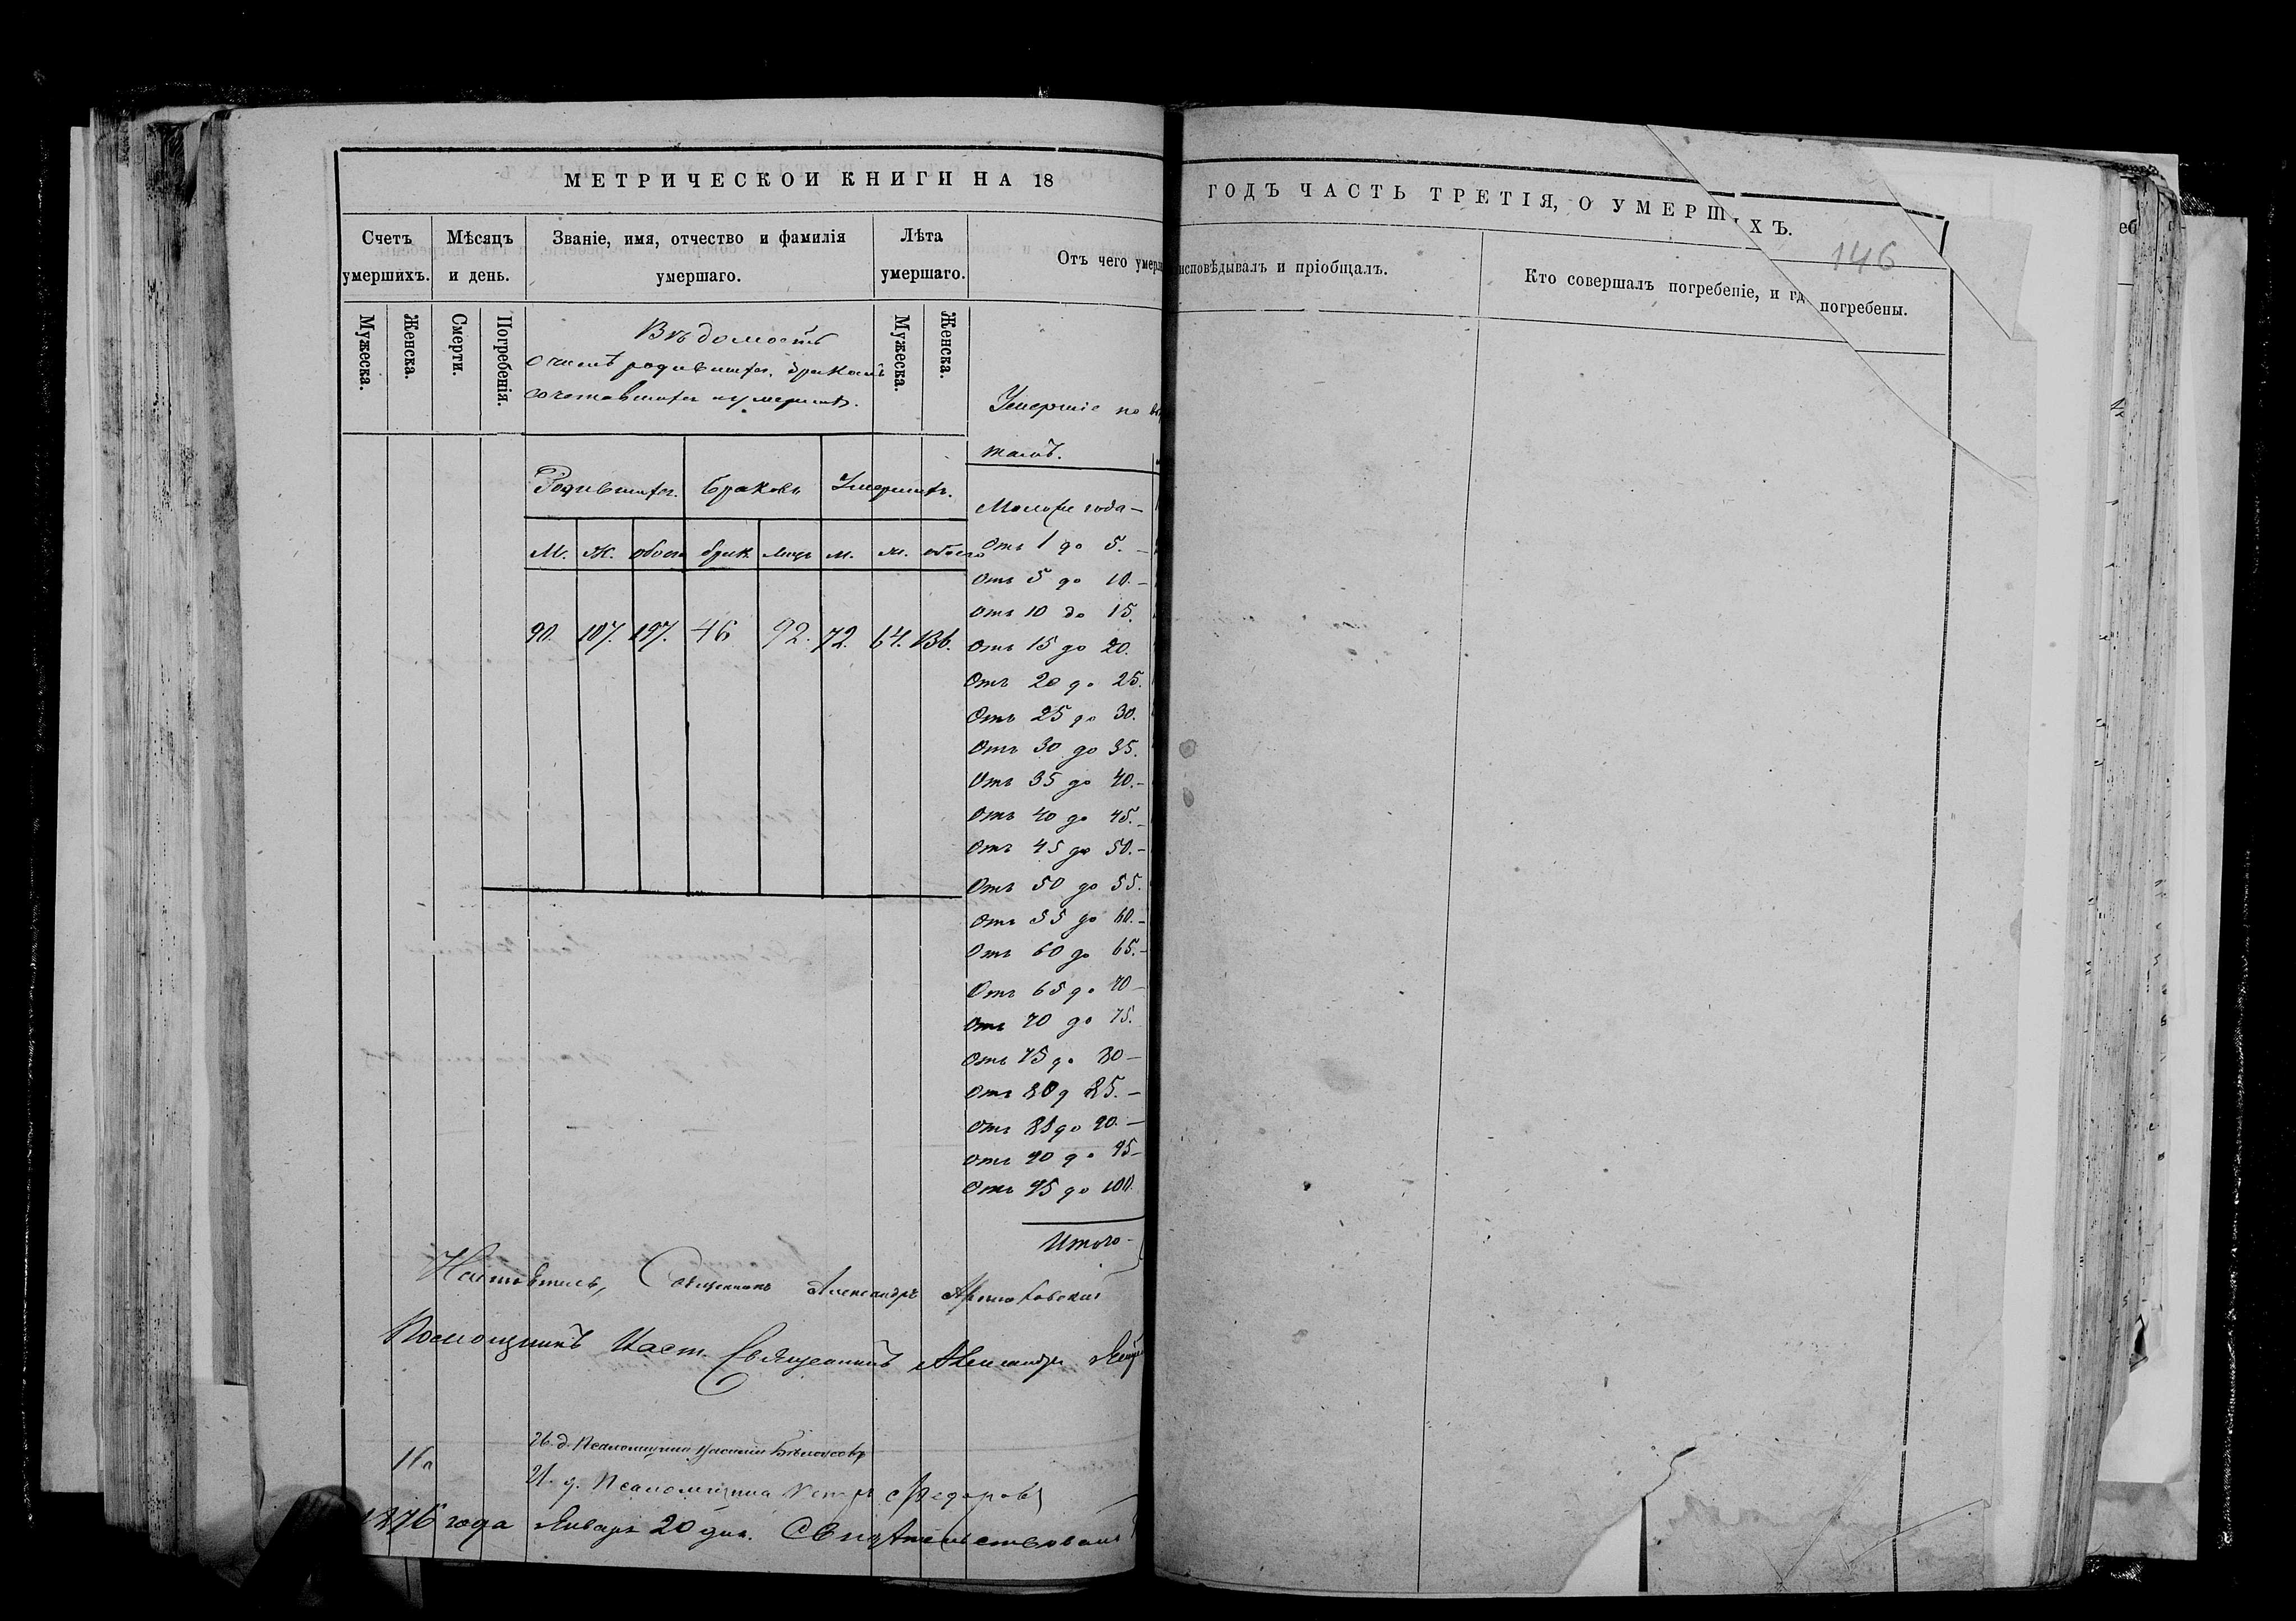 МЕТРИЧЕСКОЙ КНИГИ НА 18
ГОДЪ ЧАСТЬ ТРЕТІЯ, О УМЕРШ ХЪ.
146
Счетъ умершихъ.
Мѣсяцъ и день.
Званіе, имя, отчество и фамилія умершаго.
Лѣта умершаго.
Отъ чего умерш
исповѣдывалъ и пріобщалъ.
Кто совершалъ погребеніе, и гд погребены.
Мужеска.
Женска.
Смерти.
Погребенія.
Мужеска.
Женска.
Вѣдомость
о числѣ родившихся, бракомъ
сочетавшихся и умершихъ.
Родившихся. Браковъ Умершихъ.
М. Ж. обоего брак. лицъ м. ж. обоего
90. 107. 197. 46 92. 72. 64. 136.
Умершіе по
тамъ.
Моложе года —
Отъ 1 до 5. —
Отъ 5 до 10. —
Отъ 10 до 15.
Отъ 15 до 20.
Отъ 20 до 25.
Отъ 25 до 30.
Отъ 30 до 35.
Отъ 35 до 40. —
Отъ 40 до 45. —
Отъ 45 до 50. —
Отъ 50 до 55.
Отъ 55 до 60. —
Отъ 60 до 65. —
Отъ 65 до 70 —
Отъ 70 до 75.
Отъ 75 до 80 —
Отъ 80 д 85. —
Отъ 85 до 90. —
Отъ 90 до 95 —
Отъ 95 до 100.
Итого —
Настоятель, Священникъ Александръ
Помощникъ Наст. Священникъ Александръ
И. д. Псаломщика Василій
И. д. Псаломщика Петръ Федоровъ
1876 года Января 20 дня. Свидѣтельствовалъ